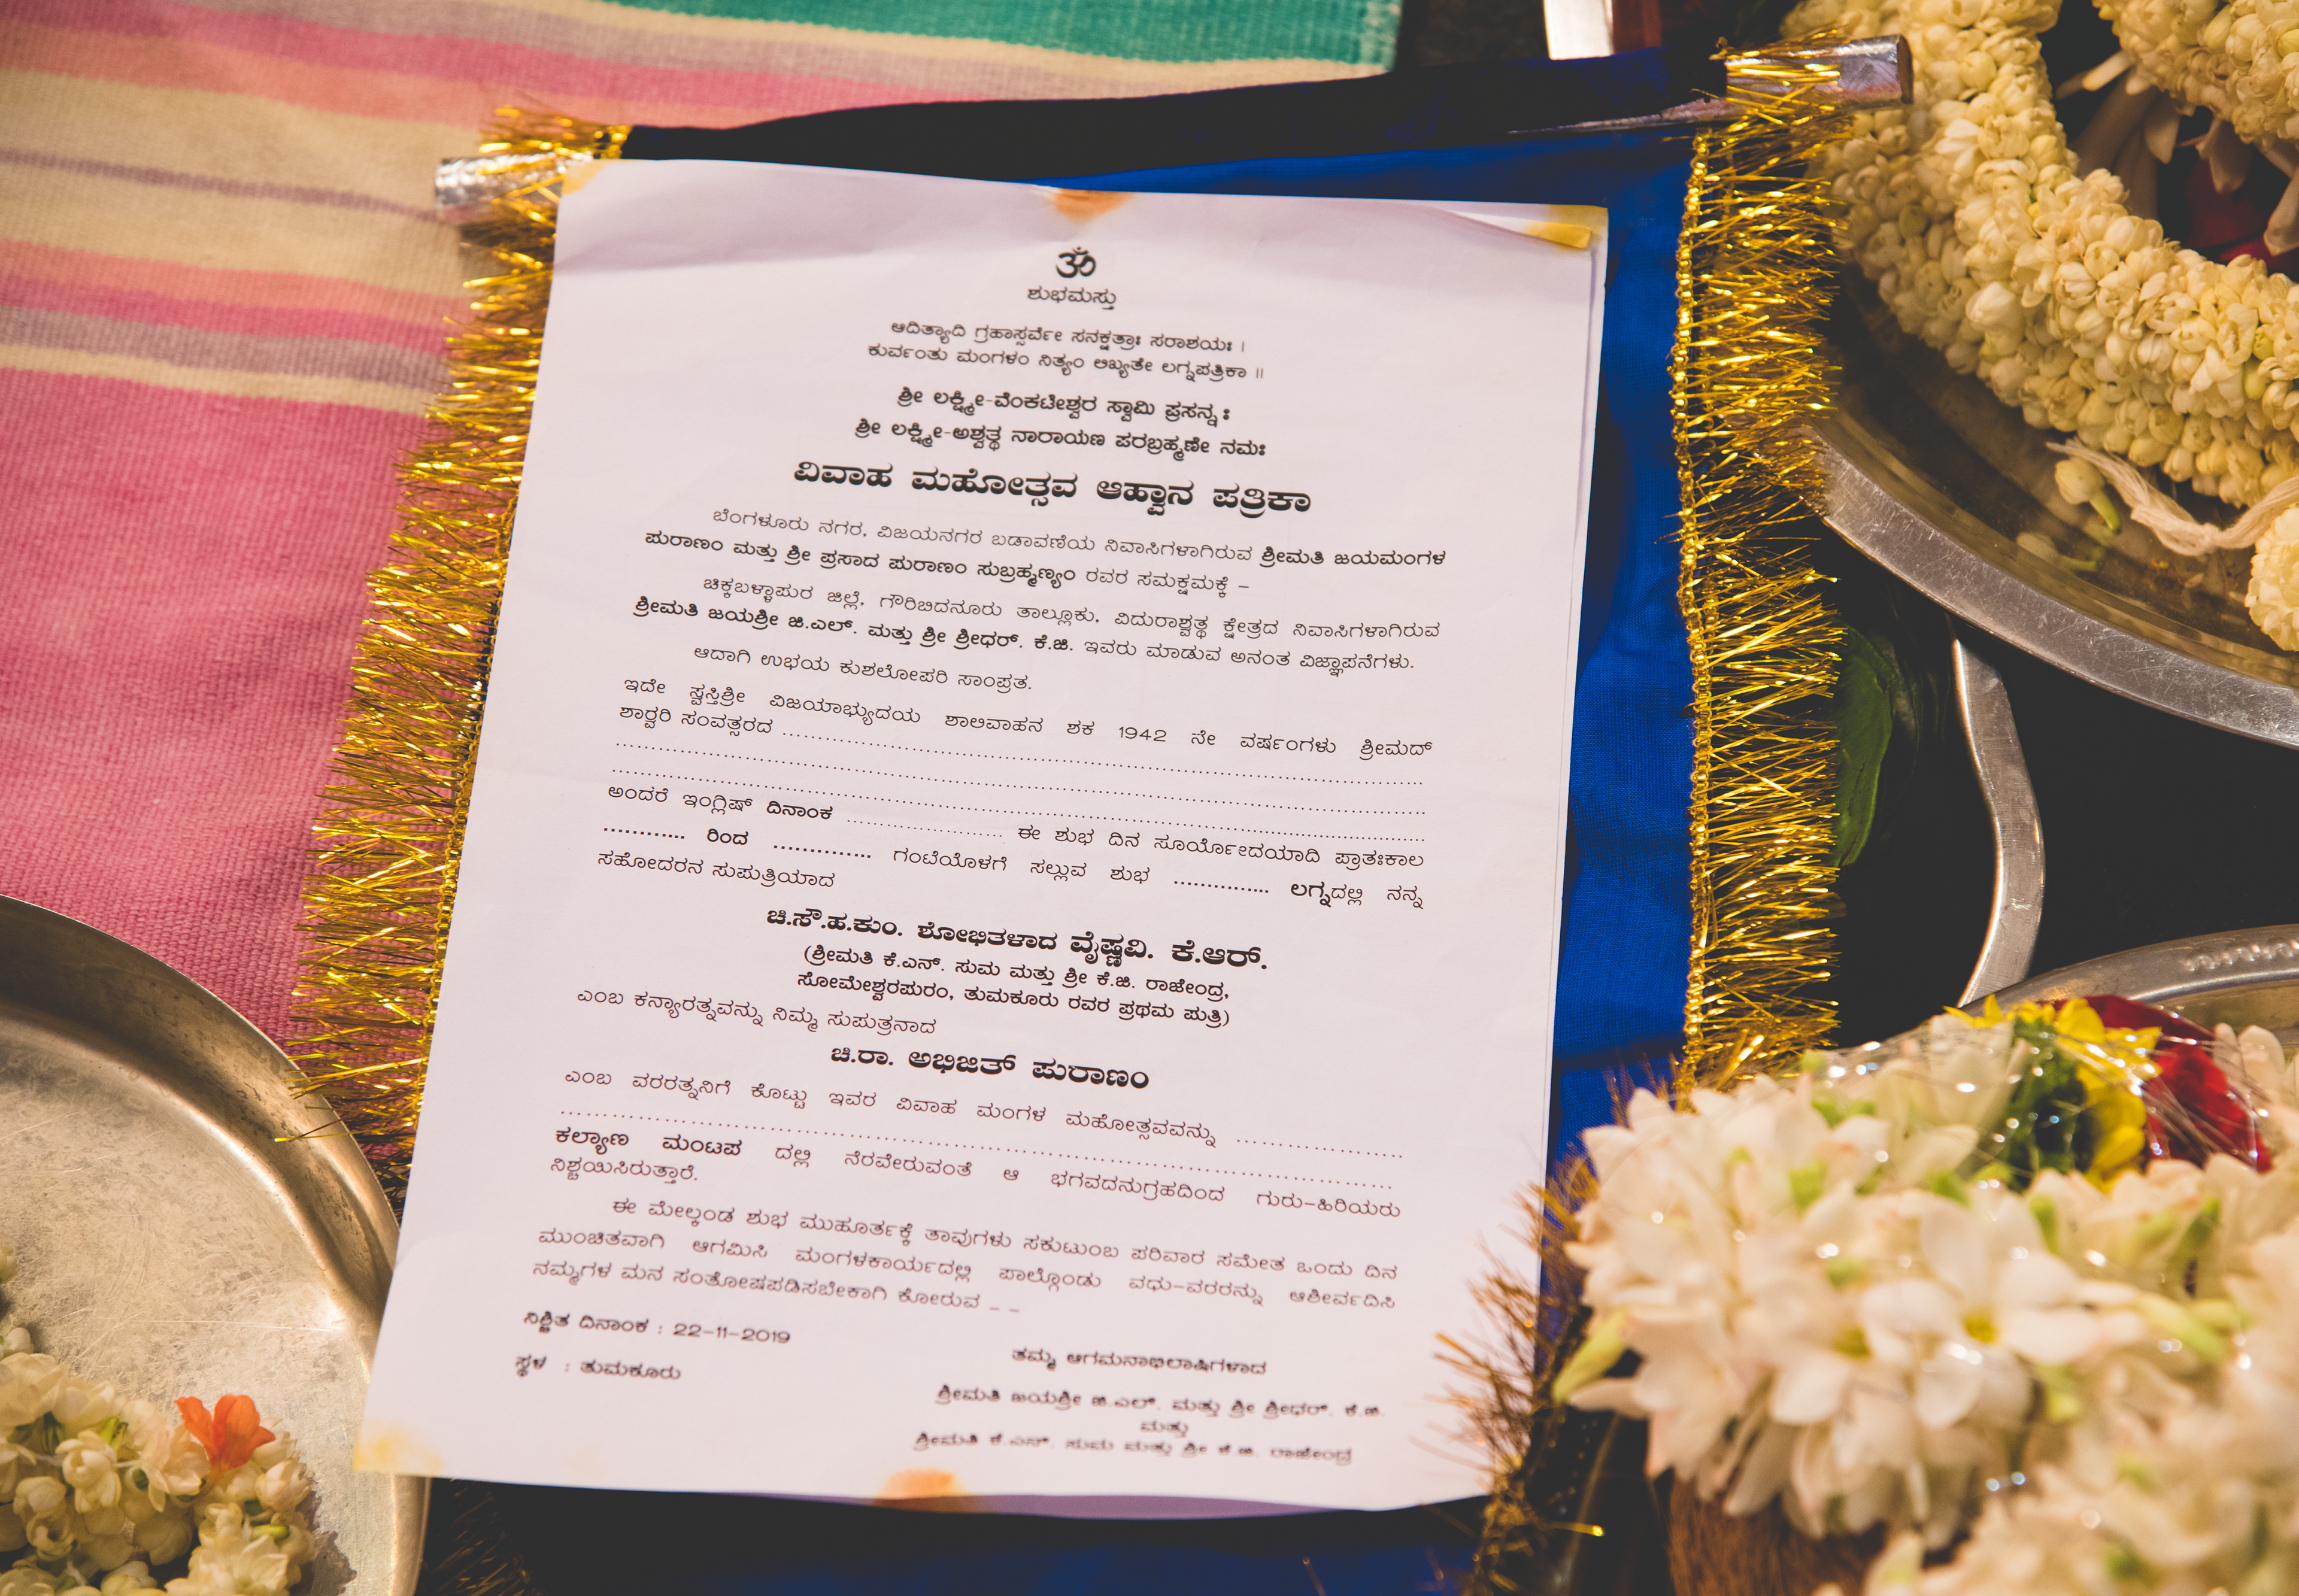 ॐ
ಶುಭಮಸ್ತು
ಆದಿತ್ಯಾದಿ ಗ್ರಹಾಸ್ಸರ್ವೇ ಸನಕ್ಷತ್ರಾಃ ಸರಾಶಯಃ ।
ಕುರ್ವಂತು ಮಂಗಳಂ ನಿತ್ಯಂ ಲಿಖ್ಯತೇ ಲಗ್ನಪತ್ರಿಕಾ ॥
ಶ್ರೀ ಲಕ್ಷ್ಮೀ-ವೆಂಕಟೇಶ್ವರ ಸ್ವಾಮಿ ಪ್ರಸನ್ನಃ
ಶ್ರೀ ಲಕ್ಷ್ಮೀ-ಅಶ್ವತ್ಥ ನಾರಾಯಣ ಪರಬ್ರಹ್ಮಣೇ ನಮಃ
ವಿವಾಹ ಮಹೋತ್ಸವ ಆಹ್ವಾನ ಪತ್ರಿಕಾ
ಬೆಂಗಳೂರು ನಗರ, ವಿಜಯನಗರ ಬಡಾವಣೆಯ ನಿವಾಸಿಗಳಾಗಿರುವ ಶ್ರೀಮತಿ ಜಯಮಂಗಳ
ಪುರಾಣಂ ಮತ್ತು ಶ್ರೀ ಪ್ರಸಾದ ಪುರಾಣಂ ಸುಬ್ರಹ್ಮಣ್ಯಂ ರವರ ಸಮಕ್ಷಮಕ್ಕೆ –
ಚಿಕ್ಕಬಳ್ಳಾಪುರ ಜಿಲ್ಲೆ, ಗೌರಿಬಿದನೂರು ತಾಲ್ಲೂಕು, ವಿದುರಾಶ್ವತ್ಥ ಕ್ಷೇತ್ರದ ನಿವಾಸಿಗಳಾಗಿರುವ
ಶ್ರೀಮತಿ ಜಯಶ್ರೀ ಜಿ.ಎಲ್. ಮತ್ತು ಶ್ರೀ ಶ್ರೀಧರ್. ಕೆ.ಜಿ. ಇವರು ಮಾಡುವ ಅನಂತ ವಿಜ್ಞಾಪನೆಗಳು.
ಆದಾಗಿ ಉಭಯ ಕುಶಲೋಪರಿ ಸಾಂಪ್ರತ.
ಇದೇ ಸ್ವಸ್ತಿಶ್ರೀ ವಿಜಯಾಭ್ಯುದಯ ಶಾಲಿವಾಹನ ಶಕ 1942 ನೇ ವರ್ಷಂಗಳು ಶ್ರೀಮದ್
ಶಾರ್ವರಿ ಸಂವತ್ಸರದ ........................................
........................................
........................................
ಅಂದರೆ ಇಂಗ್ಲಿಷ್ ದಿನಾಂಕ ............................ ಈ ಶುಭ ದಿನ ಸೂರ್ಯೋದಯಾದಿ ಪ್ರಾತಃಕಾಲ
............ ರಿಂದ .............. ಗಂಟೆಯೊಳಗೆ ಸಲ್ಲುವ ಶುಭ .............. ಲಗ್ನದಲ್ಲಿ ನನ್ನ
ಸಹೋದರನ ಸುಪುತ್ರಿಯಾದ
ಚಿ.ಸೌ.ಹ.ಕುಂ. ಶೋಭಿತಳಾದ ವೈಷ್ಣವಿ. ಕೆ.ಆರ್.
(ಶ್ರೀಮತಿ ಕೆ.ಎನ್. ಸುಮ ಮತ್ತು ಶ್ರೀ ಕೆ.ಜಿ. ರಾಜೇಂದ್ರ,
ಸೋಮೇಶ್ವರಪುರಂ, ತುಮಕೂರು ರವರ ಪ್ರಥಮ ಪುತ್ರಿ)
ಎಂಬ ಕನ್ಯಾರತ್ನವನ್ನು ನಿಮ್ಮ ಸುಪುತ್ರನಾದ
ಚಿ.ರಾ. ಅಭಿಜಿತ್ ಪುರಾಣಂ
ಎಂಬ ವರರತ್ನನಿಗೆ ಕೊಟ್ಟು ಇವರ ವಿವಾಹ ಮಂಗಳ ಮಹೋತ್ಸವವನ್ನು ....................
........................................
ಕಲ್ಯಾಣ ಮಂಟಪ ದಲ್ಲಿ ನೆರವೇರುವಂತೆ ಆ ಭಗವದನುಗ್ರಹದಿಂದ ಗುರು-ಹಿರಿಯರು
ನಿಶ್ಚಯಿಸಿರುತ್ತಾರೆ.
ಈ ಮೇಲ್ಕಂಡ ಶುಭ ಮುಹೂರ್ತಕ್ಕೆ ತಾವುಗಳು ಸಕುಟುಂಬ ಪರಿವಾರ ಸಮೇತ ಒಂದು ದಿನ
ಮುಂಚಿತವಾಗಿ ಆಗಮಿಸಿ ಮಂಗಳಕಾರ್ಯದಲ್ಲಿ ಪಾಲ್ಗೊಂಡು ವಧು-ವರರನ್ನು ಆಶೀರ್ವದಿಸಿ
ನಮ್ಮಗಳ ಮನ ಸಂತೋಷಪಡಿಸಬೇಕಾಗಿ ಕೋರುವ – –
ನಿಶ್ಚಿತ ದಿನಾಂಕ : 22-11-2019
ಸ್ಥಳ : ತುಮಕೂರು
ತಮ್ಮ ಆಗಮನಾಭಿಲಾಷಿಗಳಾದ
ಶ್ರೀಮತಿ ಜಯಶ್ರೀ ಜಿ.ಎಲ್. ಮತ್ತು ಶ್ರೀ ಶ್ರೀಧರ್. ಕೆ.ಜಿ.
ಮತ್ತು
ಶ್ರೀಮತಿ ಕೆ.ಎನ್. ಸುಮ ಮತ್ತು ಶ್ರೀ ಕೆ.ಜಿ. ರಾಜೇಂದ್ರ